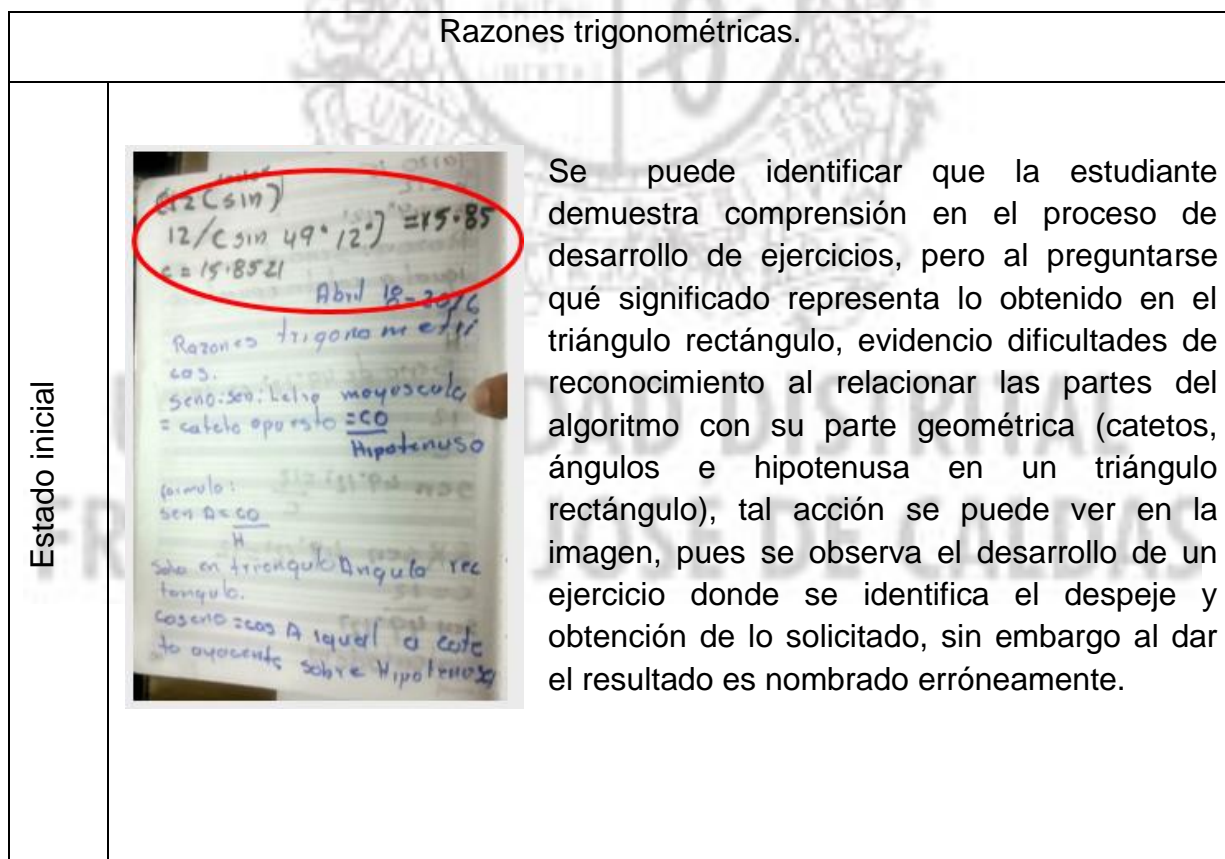 Razones trigonométricas.
Estado inicial
(12 (sin)
12/(sin 49° 12°) = 15.85
c = 15.8521
Abril 18-2016
Razones trigonometri
cas.
seno: sen: Letra mayuscula
= cateto opuesto = CO
Hipotenusa
formula:
sen A = CO
H
Solo en triangulo Angulo rec
tangulo.
coseno = cos A igual a cate
to adyacente sobre Hipotenusa
Se puede identificar que la estudiante
demuestra comprensión en el proceso de
desarrollo de ejercicios, pero al preguntarse
qué significado representa lo obtenido en el
triángulo rectángulo, evidencio dificultades de
reconocimiento al relacionar las partes del
algoritmo con su parte geométrica (catetos,
ángulos e hipotenusa en un triángulo
rectángulo), tal acción se puede ver en la
imagen, pues se observa el desarrollo de un
ejercicio donde se identifica el despeje y
obtención de lo solicitado, sin embargo al dar
el resultado es nombrado erróneamente.